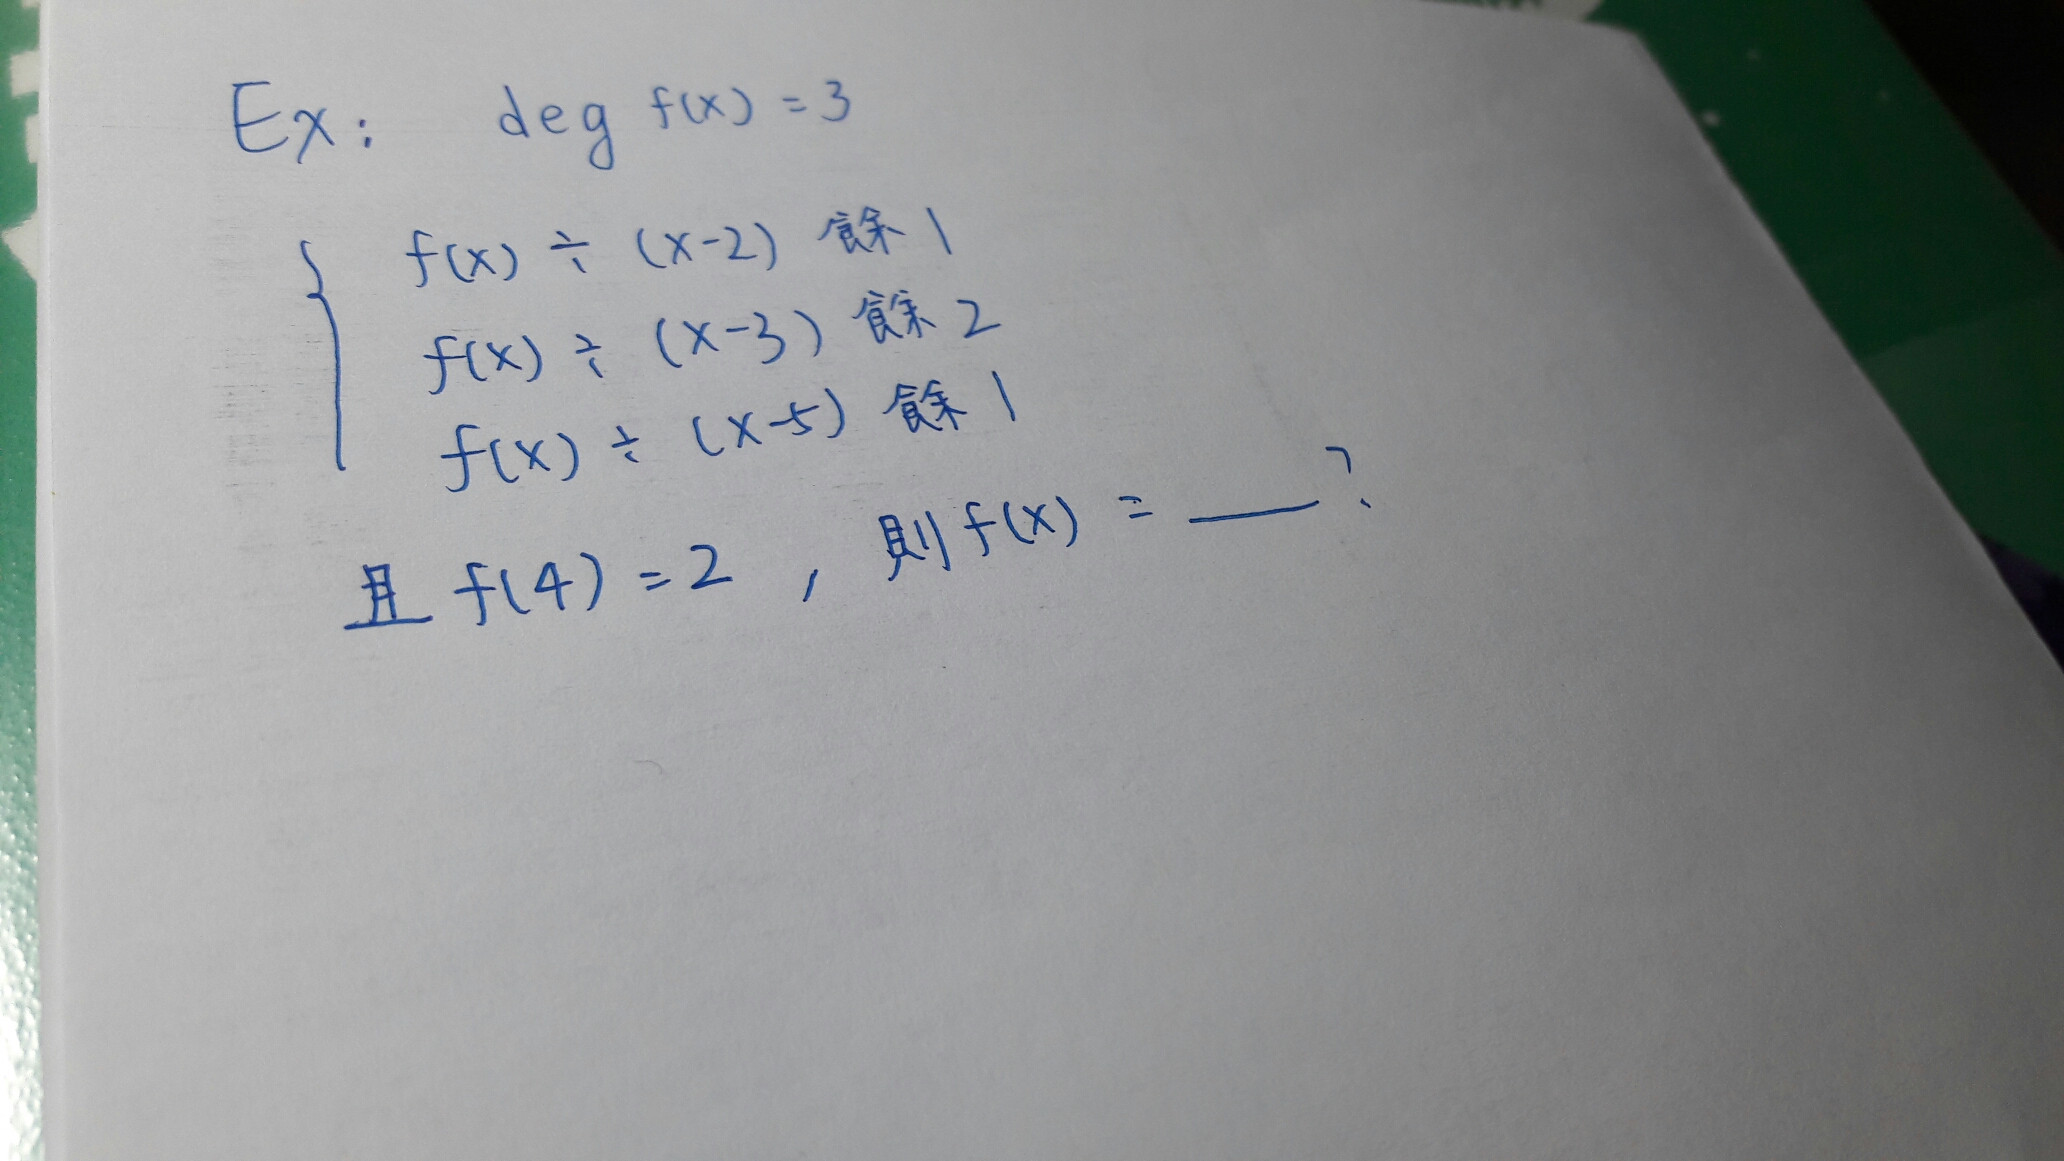 Ex: deg f(x) = 3
f(x) ÷ (x-2) 餘 1
f(x) ÷ (x-3) 餘 2
f(x) ÷ (x-5) 餘 1
且 f(4) = 2 , 則 f(x) = ___ ?